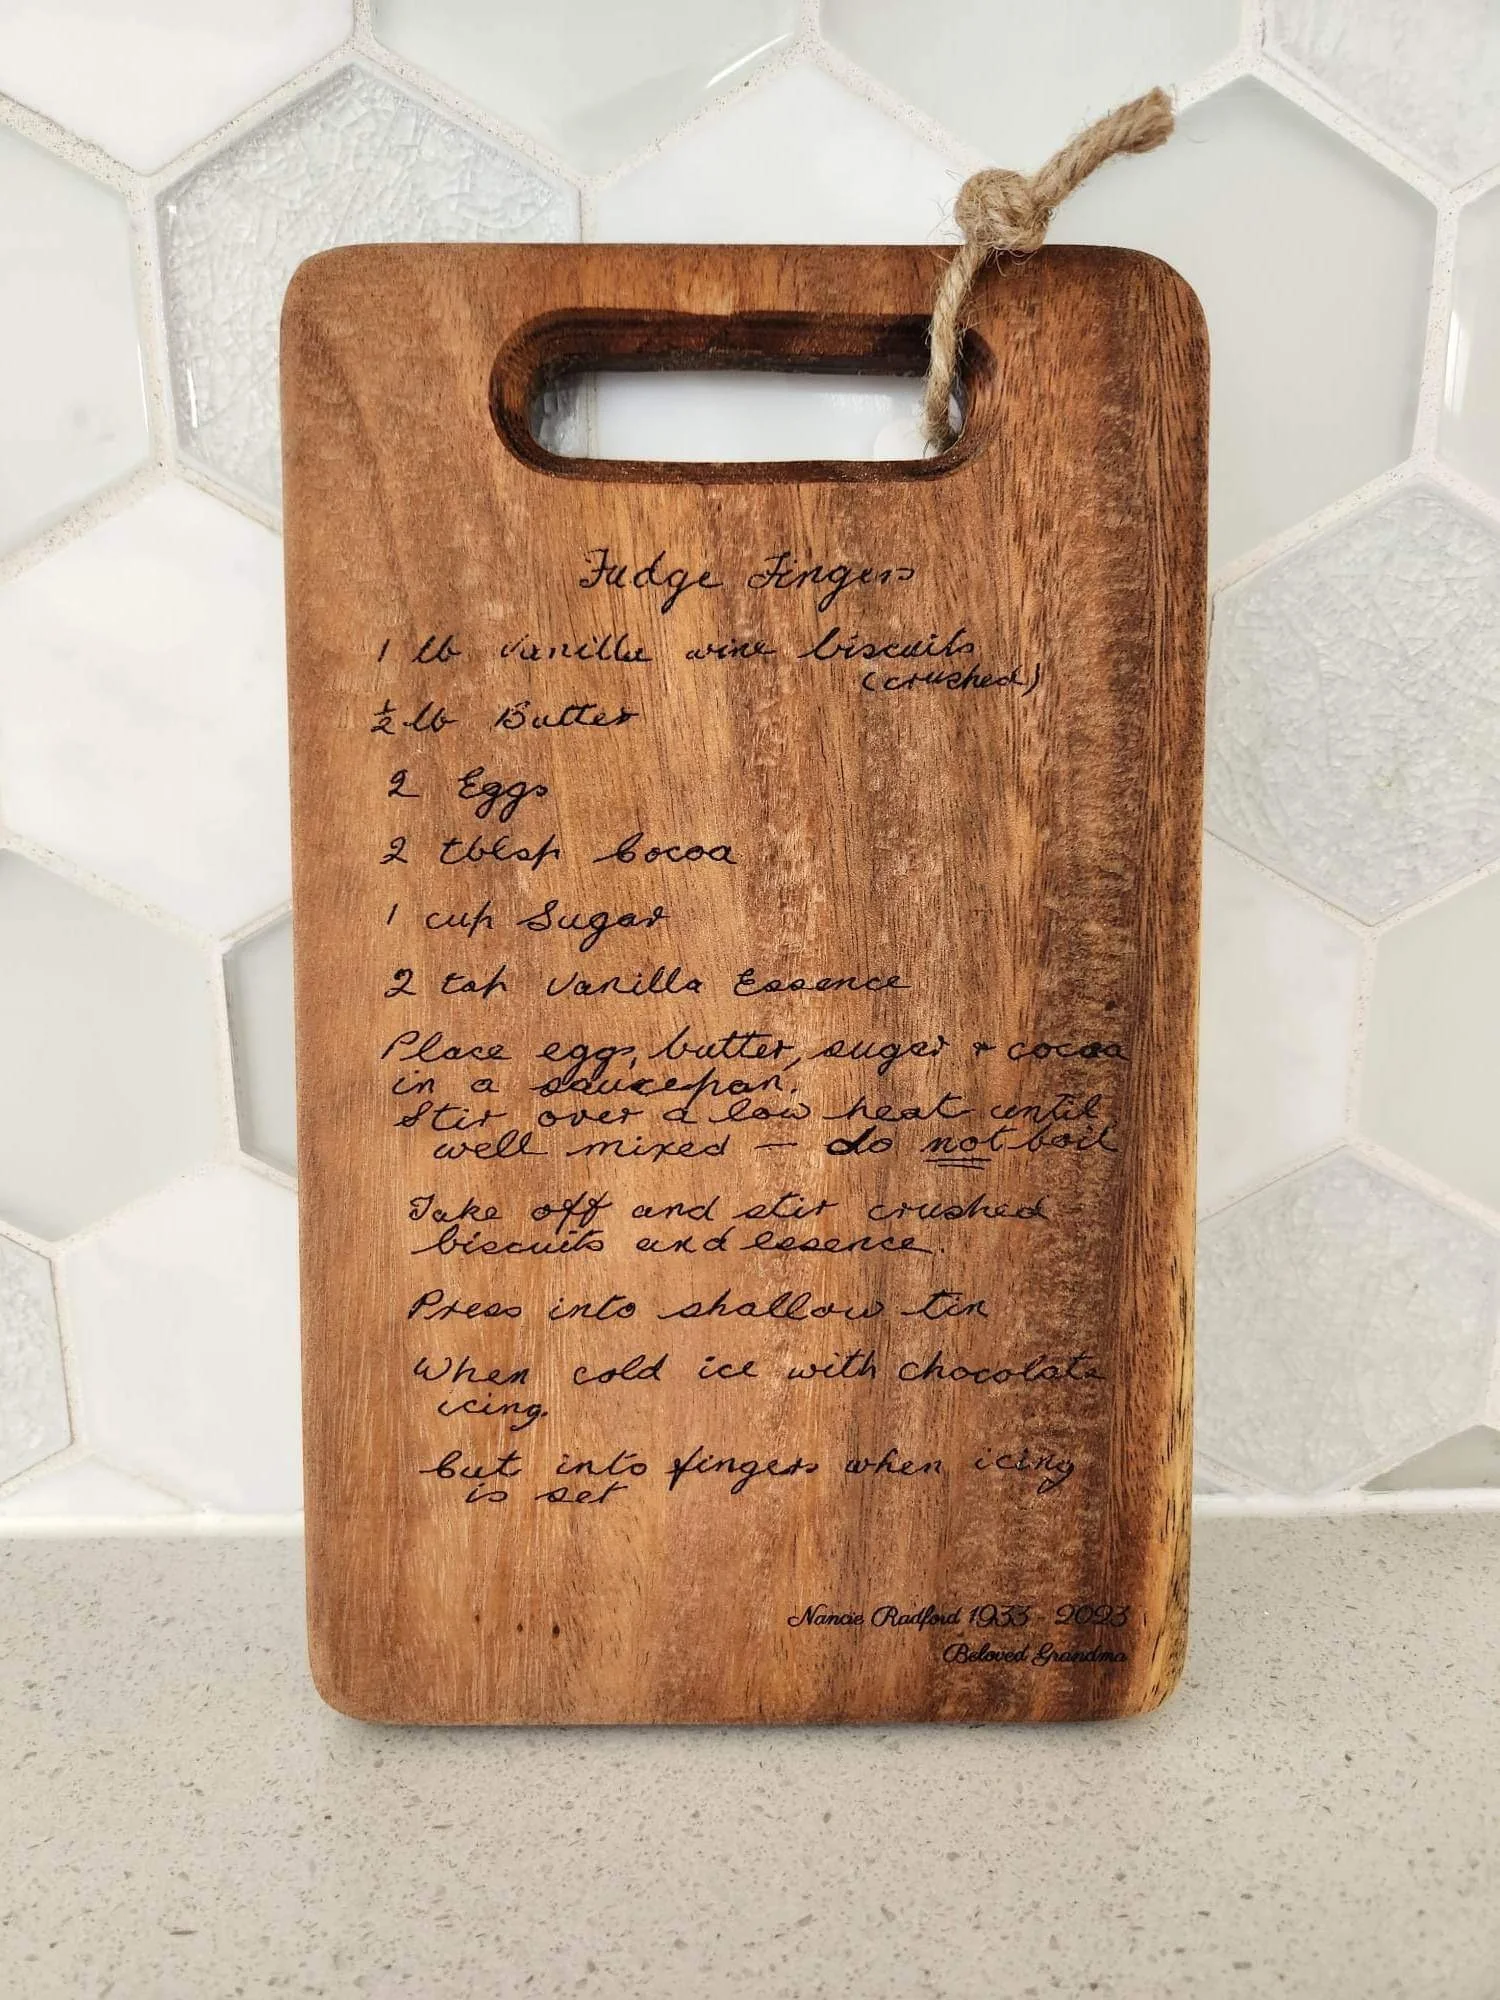 Fudge Fingers
1 lb Vanilla wine biscuits
(crushed)
½ lb Butter
2 Eggs
2 tblsp Cocoa
1 cup Sugar
2 tsp Vanilla Essence
Place eggs, butter, sugar + cocoa
in a saucepan.
Stir over a low heat until
well mixed — do not boil
Take off and stir crushed
biscuits and essence.
Press into shallow tin
When cold ice with chocolate
icing.
Cut into fingers when icing
is set
Nancie Radford 1933 - 2023
Beloved Grandma